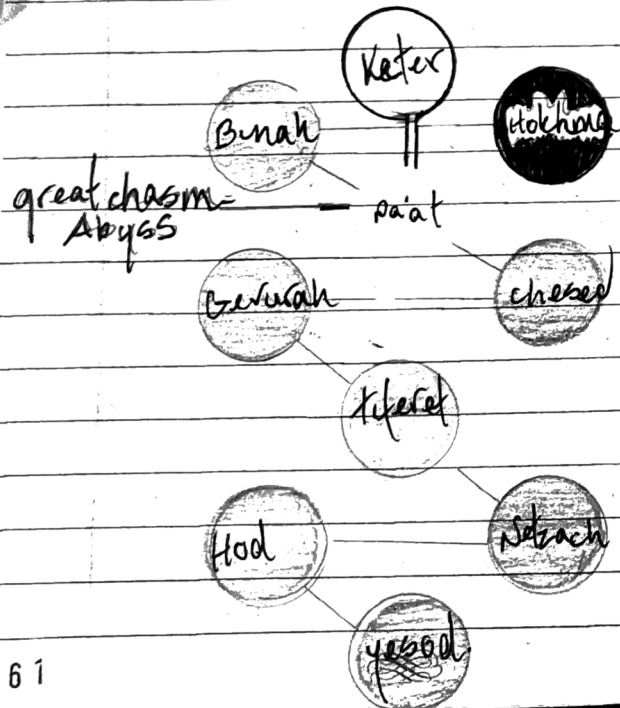 Keter
Binah
Hokhma
great chasm =
Abyss
Da'at
Gevurah
chesed
tiferet
Hod
Netzach
yesod.
61